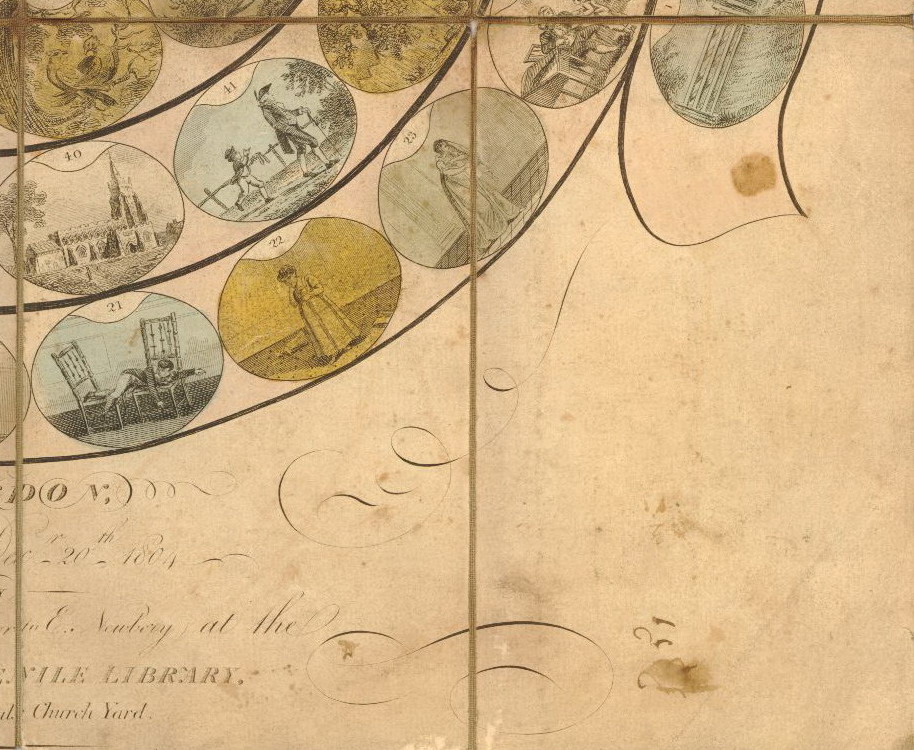 41
40
23
22
21
DON,
Decr. 20th 1804
to E. Newbery, at the
ENILE LIBRARY.
Church Yard.